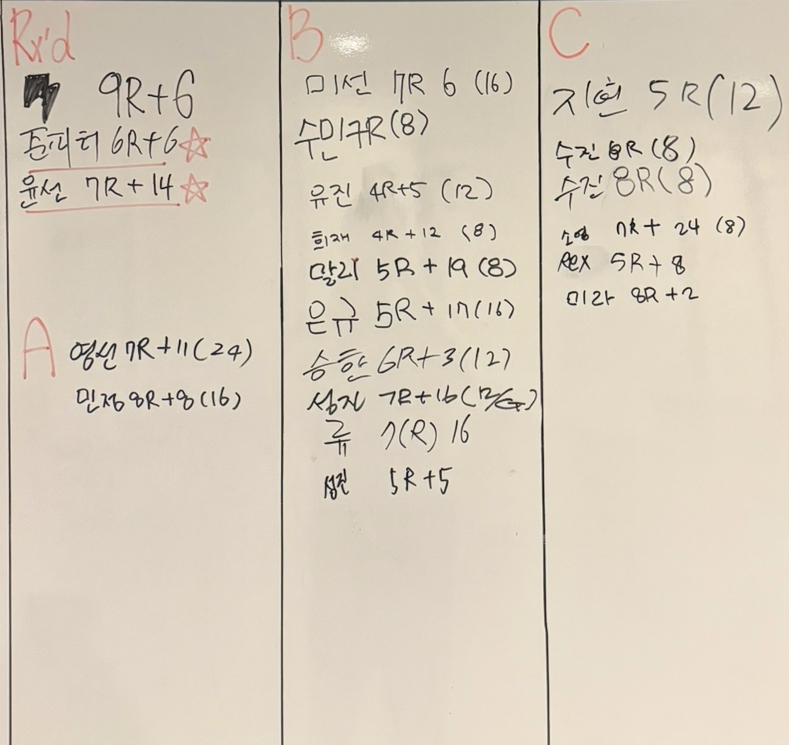 Rx'd
9R+6
준피터 6R+6
윤선 7R+14
A
영선 7R+11(24)
민정 8R+8(16)
B
미선 7R 6 (16)
수민 7R(8)
유진 4R+5 (12)
희재 4R+12 (8)
말리 5R+19(8)
은규 5R+17(16)
승한 6R+3(12)
성진 7R+16
류 7(R) 16
성진 5R+5
C
지현 5R(12)
수진 8R(8)
수진 8R(8)
소영 7R+ 24 (8)
Rex 5R+8
미라 8R+2